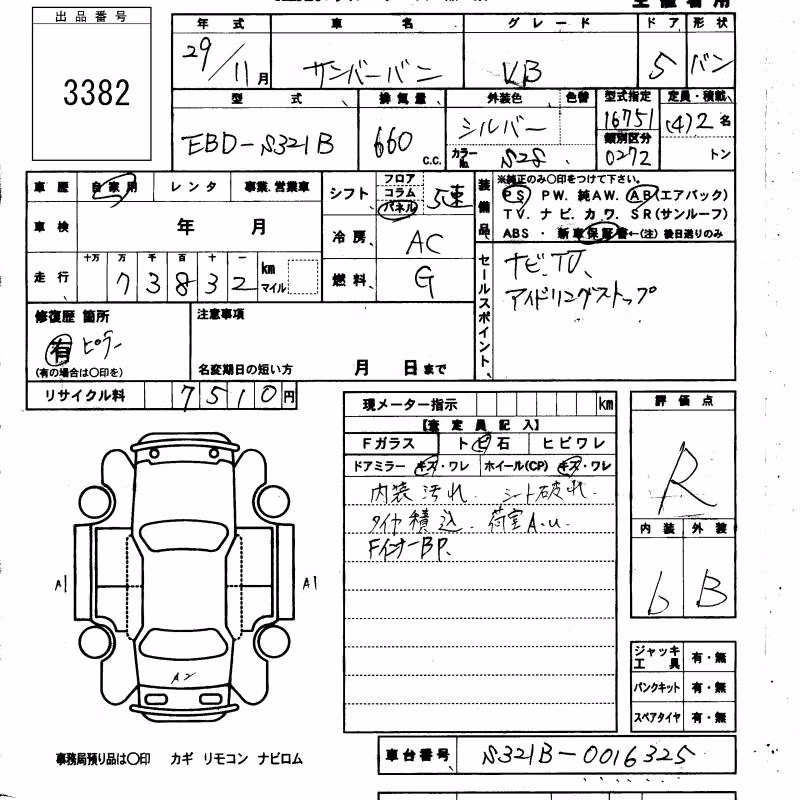 出品番号
3382
年式 車名 グレード ドア 形状
29/11月 サンバーバン VB 5 バン
型式 排気量 外装色 色替 型式指定 定員・積載
EBD-S321B 660 c.c. シルバー 16751 (4)2名
カラーNo. S28 類別区分 0272 トン
車歴 自家用 レンタ 事業.営業車
シフト フロア コラム パネル 5速
装備品 ※純正のみ〇印をつけて下さい。
PS PW. 純AW. AB(エアバック)
TV. ナビ. カワ. SR(サンルーフ)
ABS ・ 新車保証書←(注) 後日送りのみ
車検 年 月
冷房 AC
走行 十万 万 千 百 十 一
73832 km マイル
燃料 G
セールスポイント、
ナビ、TV、
アイドリングストップ
修復歴 箇所
有 ピラー
(有の場合は〇印を)
注意事項
名変期日の短い方 月 日まで
リサイクル料 7510円
現メーター指示 km
【査定員記入】
Fガラス トビ石 ヒビワレ
ドアミラー キズ・ワレ ホイール(CP) キズ・ワレ
内装汚れ. シート破れ.
タイヤ積込. 荷室A.u.
FインナーBP.
評価点
R
内装 外装
6 B
A1 A1
A2
ジャッキ工具 有・無
パンクキット 有・無
スペアタイヤ 有・無
事務局預り品は〇印 カギ リモコン ナビロム
車台番号 S321B-0016325